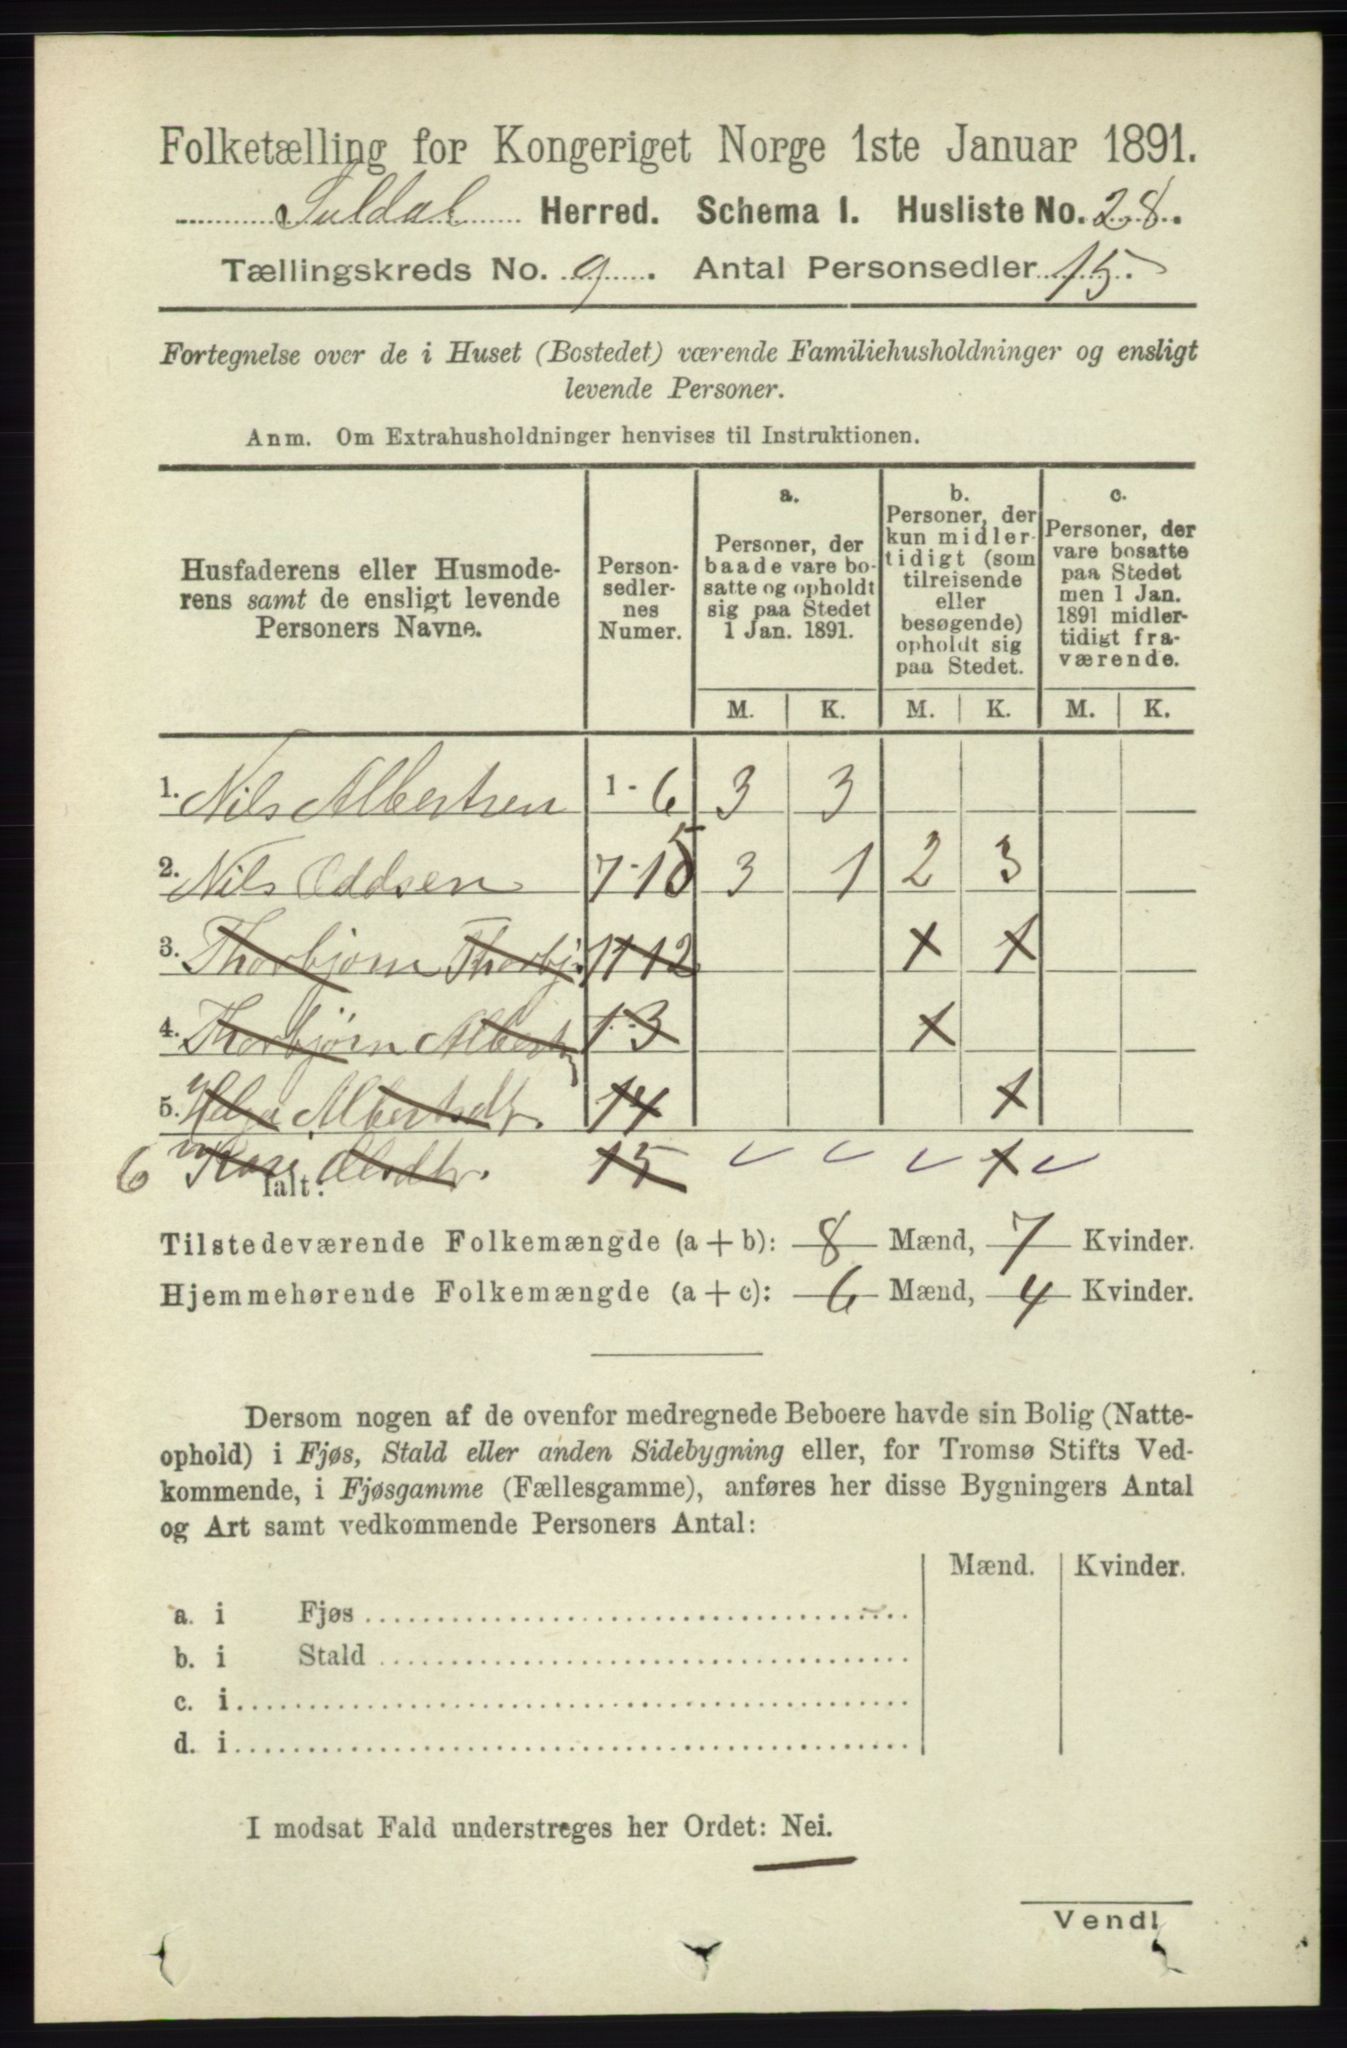 Folketælling for Kongeriget Norge 1ste Januar 1891.
Suldal Herred. Schema I. Husliste No. 28.
Tællingskreds No. 9. Antal Personsedler 15.
Fortegnelse over de i Huset (Bostedet) værende Familiehusholdninger og ensligt
levende Personer.
Anm. Om Extrahusholdninger henvises til Instruktionen.
Husfaderens eller Husmode-
rens samt de ensligt levende
Personers Navne.
Person-
sedler-
nes
Numer.
a.
Personer, der
baade vare bo-
satte og opholdt
sig paa Stedet
1 Jan. 1891.
b.
Personer, der
kun midler-
tidigt (som
tilreisende
eller
besøgende)
opholdt sig
paa Stedet.
c.
Personer, der
vare bosatte
paa Stedet
men 1 Jan.
1891 midler-
tidigt fra-
værende.
M. K. M. K. M. K.
1. Nils Albertsen 1 - 6 3 3
2. Nils Oddsen 7-15 3 1 2 3
3. Thorbjørn Thorbj. 11-12 x x
4. Thorbjørn Alberts 13 x
5. Helga Albertsdtr. 14 x
6 Kari Olsdtr. 15 x
Ialt:
Tilstedeværende Folkemængde (a + b): 8 Mænd, 7 Kvinder.
Hjemmehørende Folkemængde (a + c): 6 Mænd, 4 Kvinder.
Dersom nogen af de ovenfor medregnede Beboere havde sin Bolig (Natte-
ophold) i Fjøs, Stald eller anden Sidebygning eller, for Tromsø Stifts Ved-
kommende, i Fjøsgamme (Fællesgamme), anføres her disse Bygningers Antal
og Art samt vedkommende Personers Antal:
Mænd. Kvinder.
a. i Fjøs
b. i Stald
c. i
d. i
I modsat Fald understreges her Ordet: Nei.
Vend!